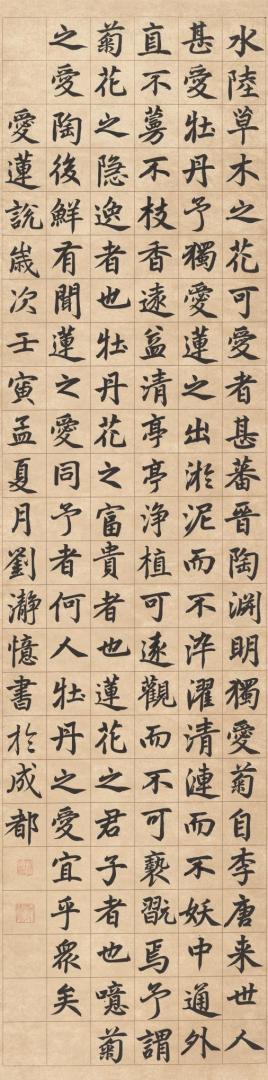 水陸草木之花可愛者甚蕃晉陶淵明獨愛菊自李唐來世人
甚愛牡丹予獨愛蓮之出淤泥而不淬濯清漣而不妖中通外
直不蔓不枝香遠益清亭亭淨植可遠觀而不可褻翫焉予謂
菊花之隱逸者也牡丹花之富貴者也蓮花之君子者也噫菊
之愛陶後鮮有聞蓮之愛同予者何人牡丹之愛宜乎眾矣
愛蓮說歲次壬寅孟夏月劉瀞憶書於成都